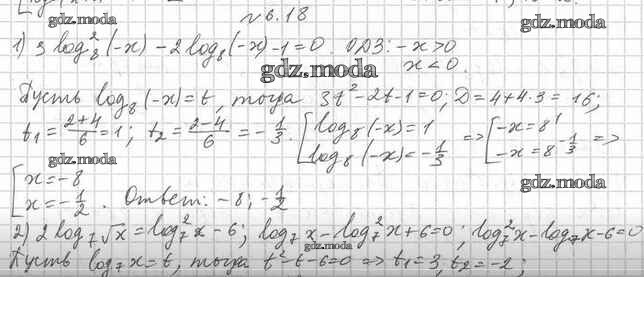 №6.18
gdz.moda gdz.moda
1) 3 log₈²(-x) - 2 log₈(-x) - 1 = 0. ОДЗ: -x > 0
x < 0.
gdz.moda
Пусть log₈(-x) = t, тогда 3t² - 2t - 1 = 0; D = 4 + 4·3 = 16;
t₁ = (2+4)/6 = 1; t₂ = (2-4)/6 = -1/3. [log₈(-x) = 1 => [-x = 8¹
log₈(-x) = -1/3 -x = 8^(-1/3) =>
gdz.moda gdz.moda
[x = -8
x = -1/2 . Ответ: -8; -1/2
2) 2 log₇√x = log₇²x - 6; log₇x - log₇²x + 6 = 0; log₇²x - log₇x - 6 = 0
gdz.moda
Пусть log₇x = t, тогда t² - t - 6 = 0 => t₁ = 3, t₂ = -2;